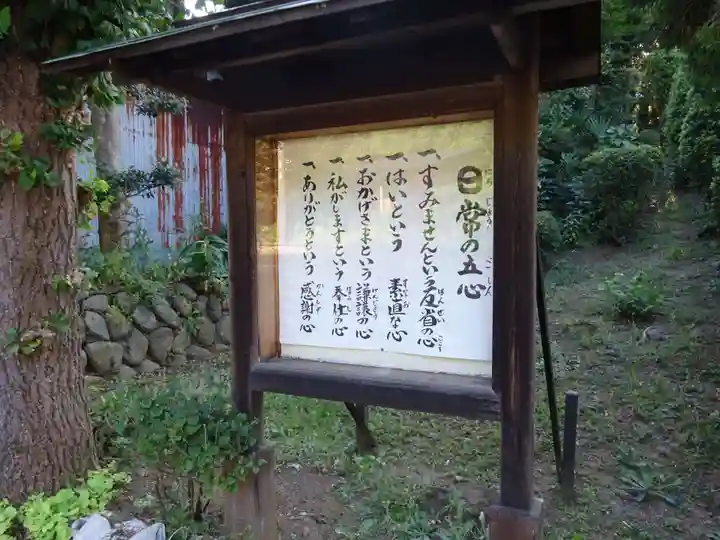 日常の五心
一、すみませんという反省の心
一、はいという 素直な心
一、おかげさまという謙譲の心
一、私がしますという奉仕の心
一、ありがとうという 感謝の心